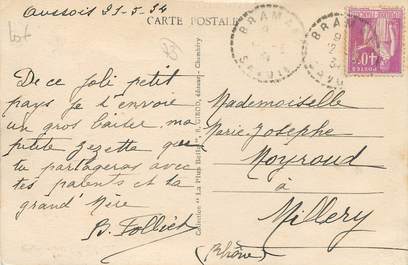 Aussois 21-5-34
CARTE POSTALE
De ce joli petit
pays je t'envoie
un gros baiser, ma
petite zezette que
tu partageras avec
tes parents et ta
grand' Mère
B. Folliet
Collection "La Plus Belle", R. GIROD, éditeur - Chambéry
BRAMA
SAVOIE
BRAMA
40c
POSTES
Mademoiselle
Marie Josephe
Moyroud
à
Millery
(Rhône)
lot